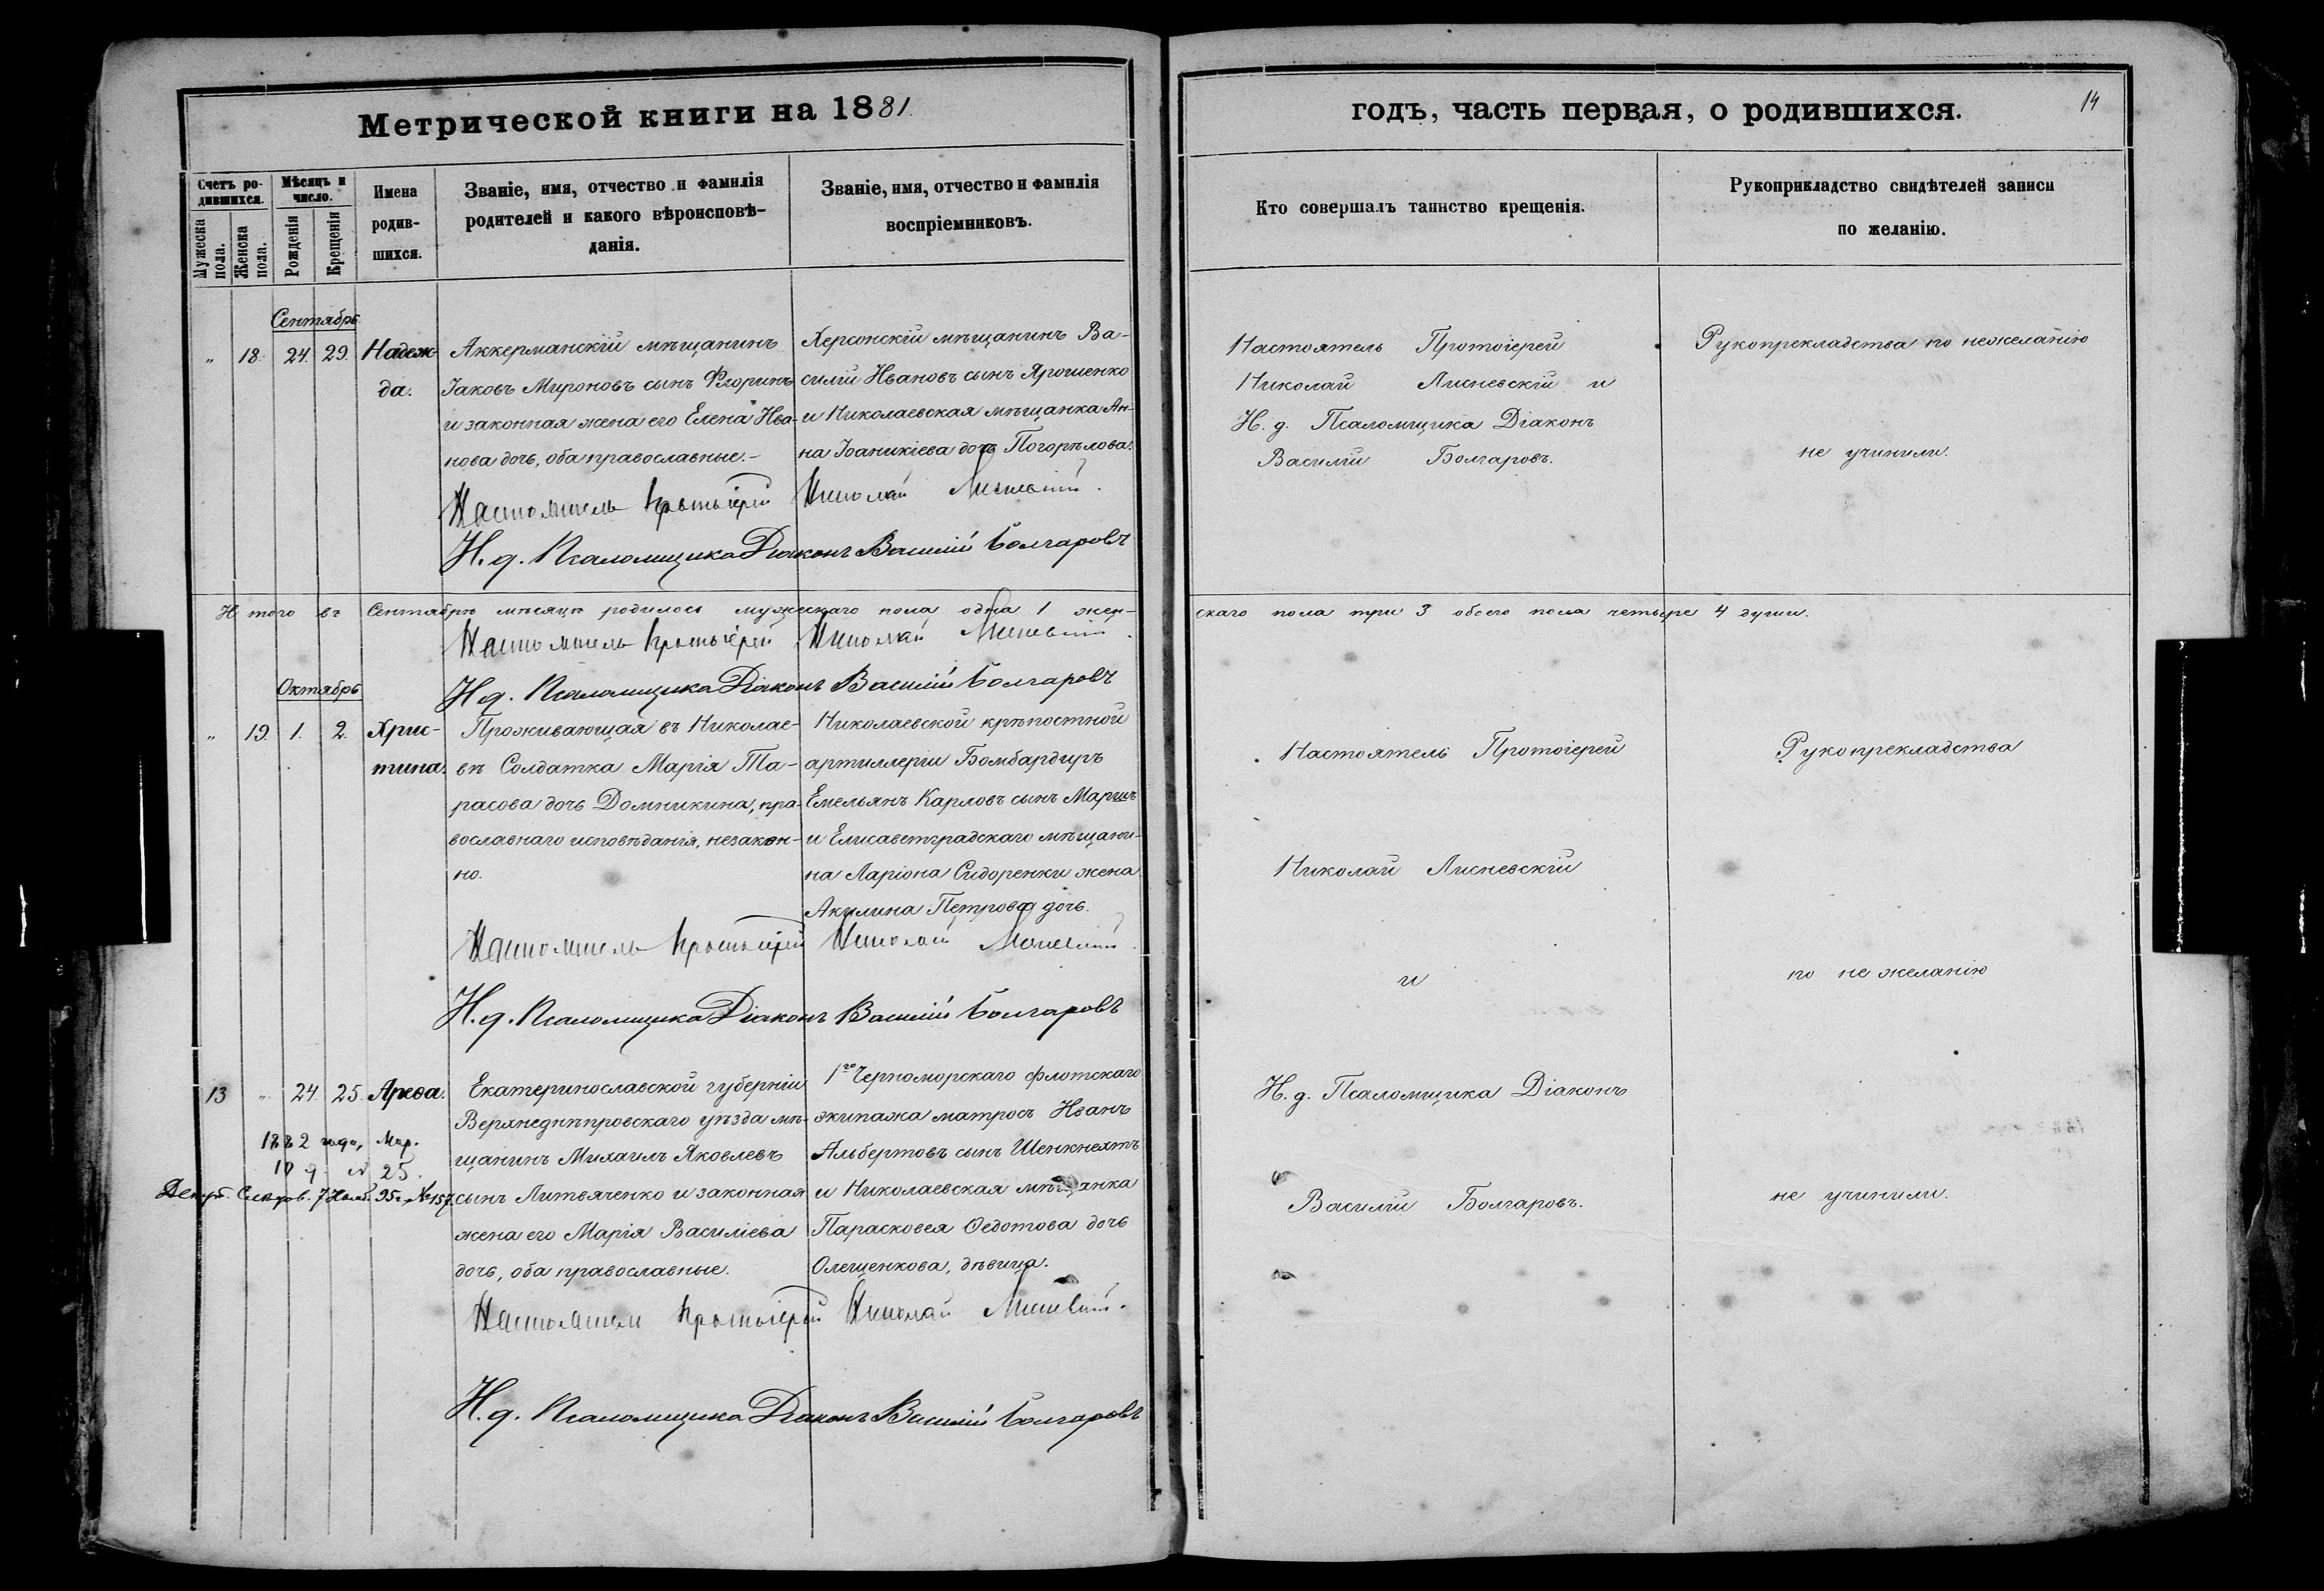 Метрической книги на 1881.
Счетъ родившихся.
Мужеска пола.
Женска пола.
Мѣсяцъ и число.
Рожденія
Крещенія
Имена родив-
шихся.
Званіе, имя, отчество и фамилія
родителей и какого вѣроисповѣ-
данія.
Званіе, имя, отчество и фамилія
воспріемниковъ.
Сентябрь
" 18. 24. 29. Надеж-
да.
Аккерманскій мѣщанинъ
Іаковъ Мироновъ сынъ Флоринъ
и законная жена его Елена Ива-
нова дочь, оба православные.-
Херсонскій мѣщанинъ Ва-
силій Ивановъ сынъ Ярошенко
и Николаевская мѣщанка Ан-
на Іоаникіева дочь Погорѣлова.
Настоятель Протоіерей Николай Лисневскій.
И. д. Псаломщика Діаконъ Василій Болгаровъ
Итого въ Сентябрѣ мѣсяцѣ родилось мужескаго пола одна 1 жен-
Настоятель Протоіерей Николай Лисневскій.
И. д. Псаломщика Діаконъ Василій Болгаровъ
Октябрь
" 19. 1. 2. Хрис-
тина.
Проживающая въ Николае-
вѣ Солдатка Марія Та-
расова дочь Домникина, пра-
вославнаго исповѣданія, незакон-
но.
Николаевской крѣпостной
артиллеріи Бомбардиръ
Емельянъ Карловъ сынъ Маргинъ
и Елисаветградскаго мѣщани-
на Ларіона Сидоренки жена
Акилина Петрова дочь.
Настоятель Протоіерей Николай Лисневскій.
И. д. Псаломщика Діаконъ Василій Болгаровъ
13 " 24. 25. Арефа.
1882 года, Мар.
10 д. № 25.
7 Нояб. 95 г. № 157.
Екатеринославской губерніи
Верхнеднѣпровскаго уѣзда мѣ-
щанинъ Михаилъ Яковлевъ
сынъ Литвяченко и законная
жена его Марія Василіева
дочь, оба православные.
1го Черноморскаго флотскаго
экипажа матросъ Иванъ
Альбертовъ сынъ Шенкнехтъ
и Николаевская мѣщанка
Парасковея Ѳедотова дочь
Олещенкова, дѣвица.
Настоятель Протоіерей Николай Лисневскій.
И. д. Псаломщика Діаконъ Василій Болгаровъ
годъ, часть первая, о родившихся.
14
Кто совершалъ таинство крещенія.
Рукоприкладство свидѣтелей записи
по желанію.
Настоятель Протоіерей
Николай Лисневскій и
И. д. Псаломщика Діаконъ
Василій Болгаровъ.
Рукопрекладства по нежеланію
не учинили.
скаго пола три 3 обоего пола четыре 4 души.
Настоятель Протоіерей
Николай Лисневскій
и
И. д. Псаломщика Діаконъ
Василій Болгаровъ.
Рукопрекладства
по не желанію
не учинили.